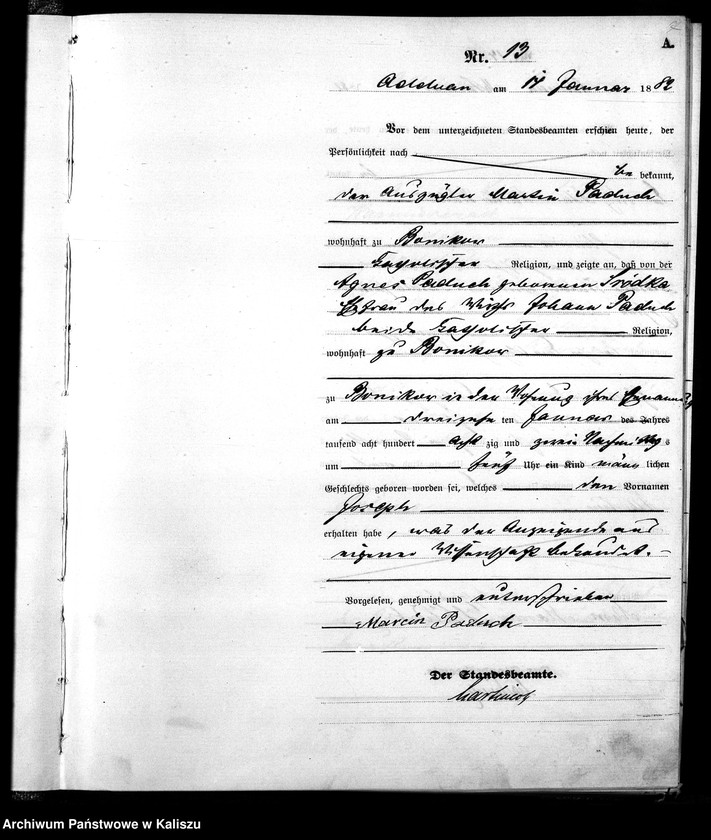 A.
Nr. 13
Adelnau am 17 Januar 1882
Vor dem unterzeichneten Standesbeamten erschien heute, der
Persönlichkeit nach
be kannt,
der Auszügler Martin Paduch
wohnhaft zu Bonikow
katholischer Religion, und zeigte an, daß von der
Agnes Paduch geborenen Sródka
Ehefrau des Wirths Johann Paduch
beide katholischer Religion,
wohnhaft zu Bonikow
zu Bonikow in der Wohnung ihres Ehemannes
am dreizehn ten Januar des Jahres
tausend acht hundert acht zig und zwei Nachmittags
um fünf Uhr ein Kind männ lichen
Geschlechts geboren worden sei, welches den Vornamen
Joseph
erhalten habe, was der Anzeigende aus
eigener Wissenschaft bekundet.
Vorgelesen, genehmigt und unterschrieben
Marcin Paduch
Der Standesbeamte.
Archiwum Państwowe w Kaliszu